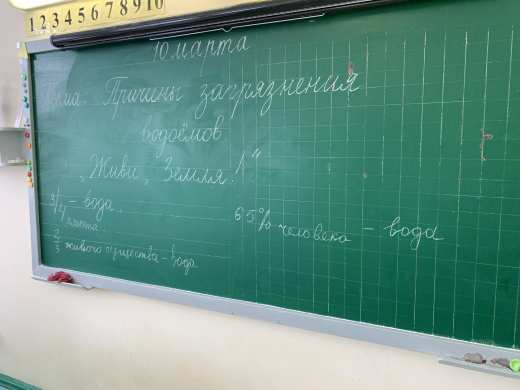 1 2 3 4 5 6 7 8 9 10
10 марта
Тема: Причины загрязнения
водоёмов
„Живи, Земля!“
3/4 - вода.
планета
2/3 живого существа - вода
65% человека - вода